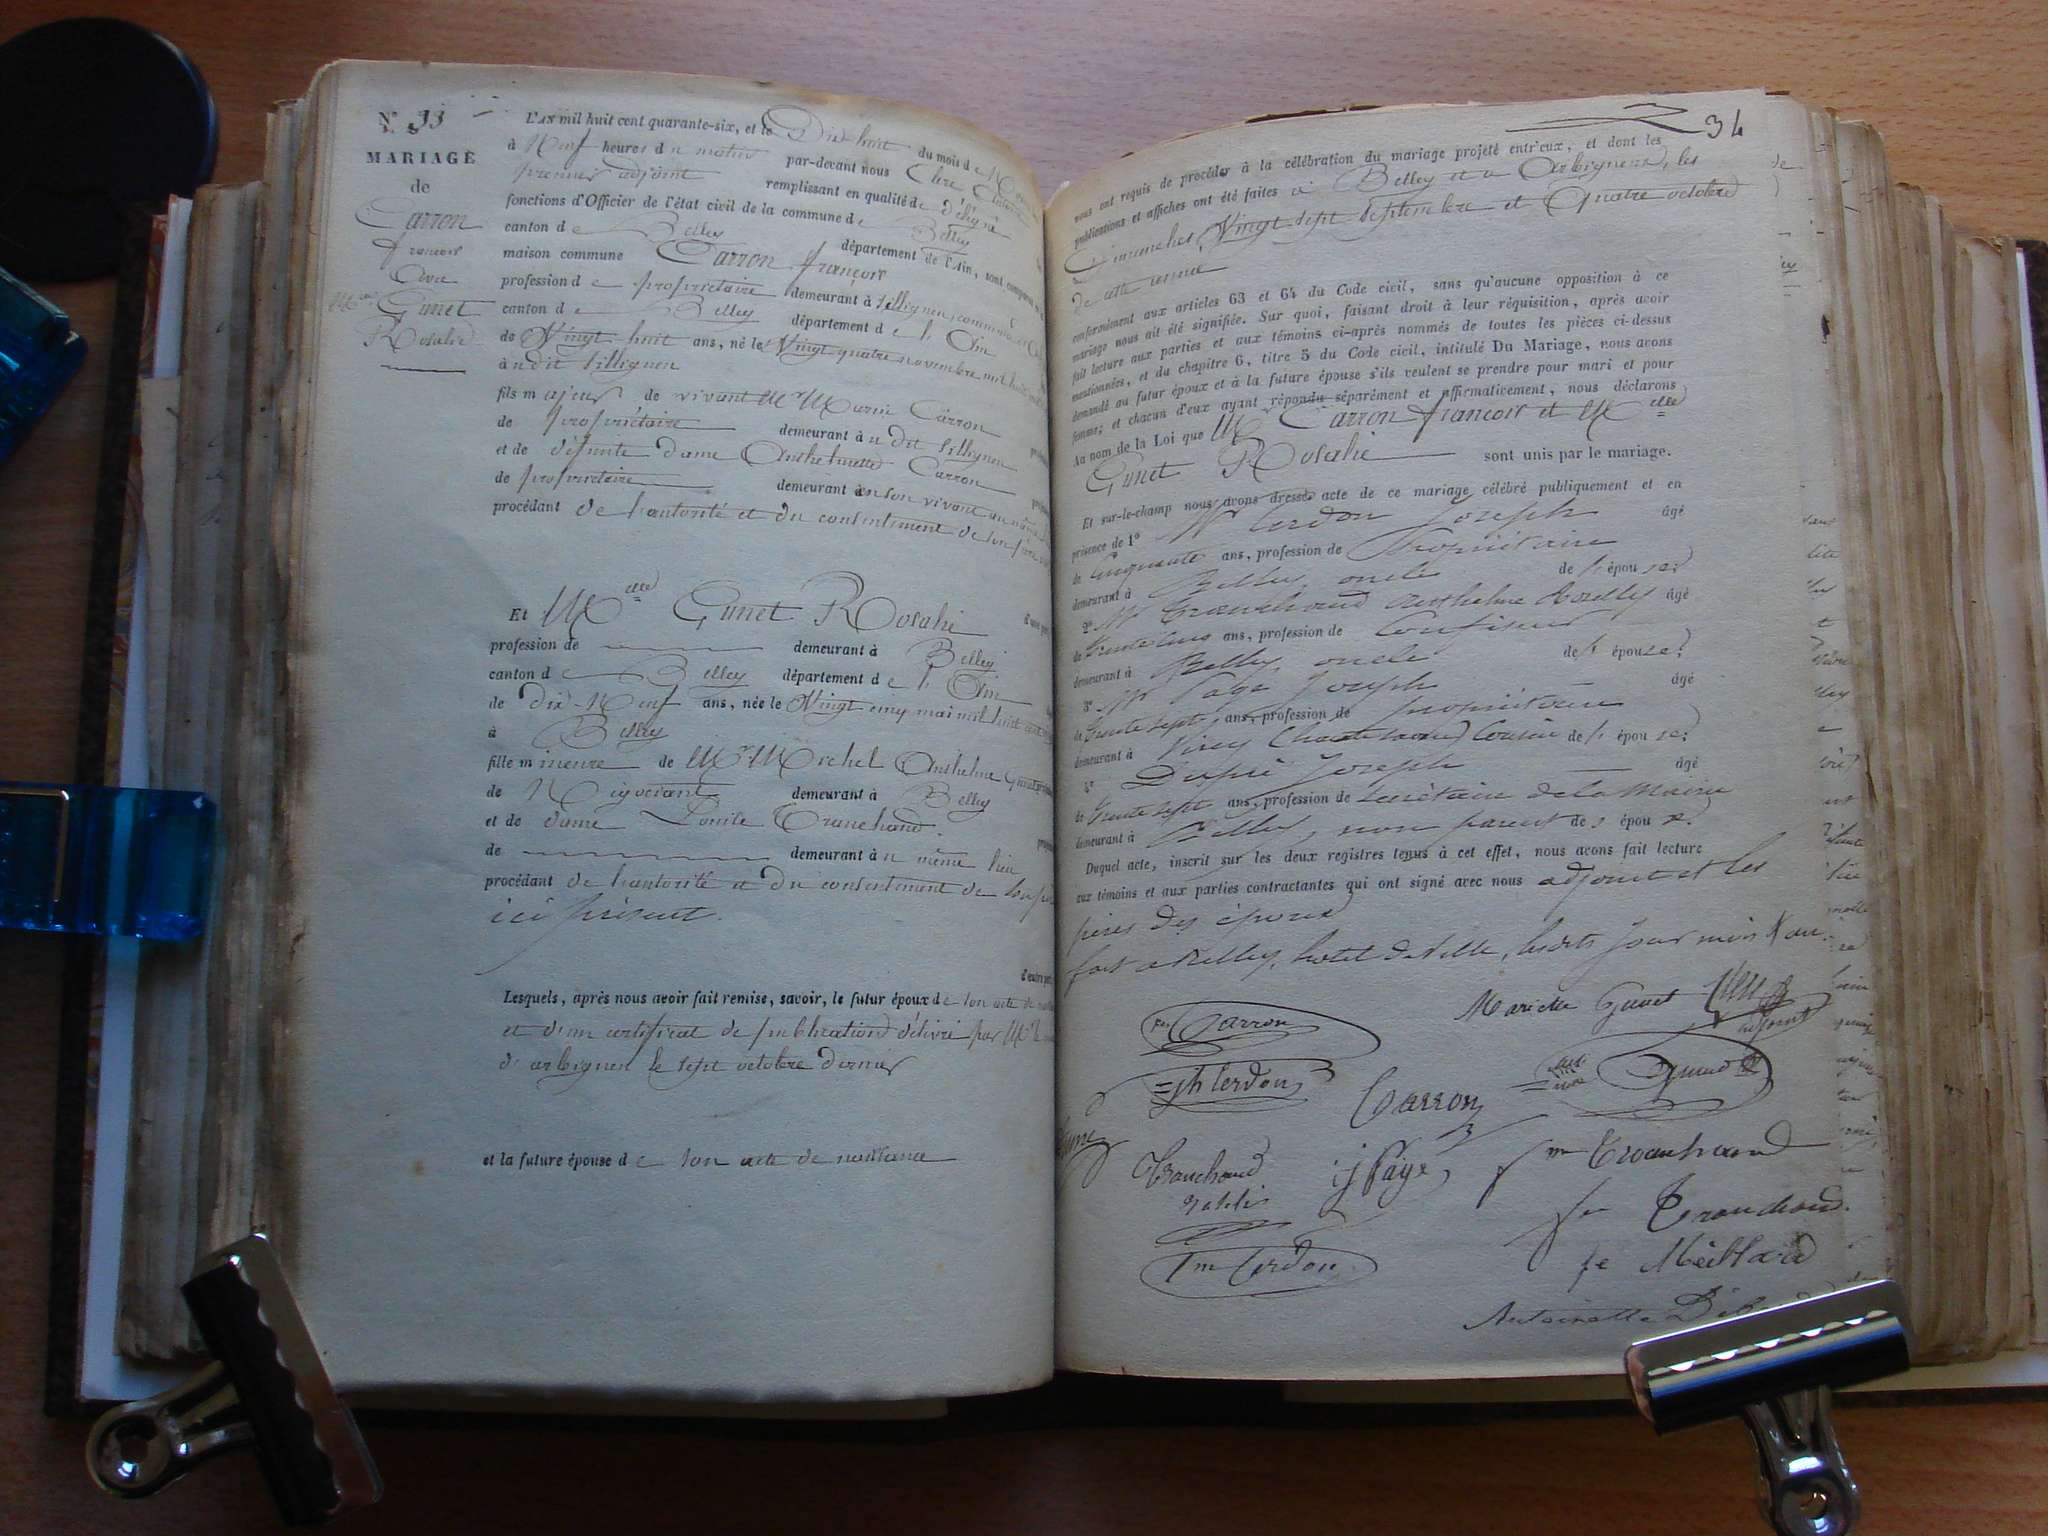 N° 33
MARIAGE
de
Carron
françois
avec
Melle Gunet
Rosalie
L'AN mil huit cent quarante-six, et le Dix huit du mois de
à Neuf heures du matin par-devant nous
premier adjoint remplissant en qualité de délégué
fonctions d'Officier de l'état civil de la commune de Belley
canton de Belley département de l'Ain, sont comparus
maison commune Carron françois
profession de propriétaire demeurant à Sillignieu, commune
canton de Belley département de l'Ain
de Vingt huit ans, né le Vingt quatre novembre mil huit
à udit Sillignieu
fils majeur de vivant Mr Marin Carron
de propriétaire demeurant àudit Sillignieu
et de défunte dame Anthelmette Carron
de propriétaire demeurant à en son vivant au même
procédant de l'autorité et du consentement de son père
Et Melle Gunet Rosalie
profession de demeurant à Belley
canton de Belley département de l'Ain
de dix-Neuf ans, née le Vingt cinq mai mil huit cent
à Belley
fille mineure de Mr Michel Anthelme Gunet
de Négociant demeurant à Belley
et de dame Louise Tranchand
de demeurant àu même lieu
procédant de l'autorité et du consentement de son père
ici présent.
d'autre part
Lesquels, après nous avoir fait remise, savoir, le futur époux de son acte de
et d'un certificat de publication délivré par Mr
d'arbignieu le sept octobre dernier
et la future épouse de son acte de naissance
34
nous ont requis de procéder à la célébration du mariage projeté entr'eux, et dont les
publications et affiches ont été faites à Belley et à Arbignieu, les
Dimanches Vingt sept septembre et Quatre octobre
de cette année
conformément aux articles 63 et 64 du Code civil, sans qu'aucune opposition à ce
mariage nous ait été signifiée. Sur quoi, faisant droit à leur réquisition, après avoir
fait lecture aux parties et aux témoins ci-après nommés de toutes les pièces ci-dessus
mentionnées, et du chapitre 6, titre 5 du Code civil, intitulé Du Mariage, nous avons
demandé au futur époux et à la future épouse s'ils veulent se prendre pour mari et pour
femme; et chacun d'eux ayant répondu séparément et affirmativement, nous déclarons
Au nom de la Loi que Mr Carron françois et Melle
Gunet Rosalie sont unis par le mariage.
Et sur-le-champ nous avons dressé acte de ce mariage célébré publiquement et en
présence de 1° Mr Cerdon Joseph âgé
de cinquante ans, profession de Propriétaire
demeurant à Belley, oncle de l'épouse;
2° Mr Tranchand Anthelme âgé
de ans, profession de Confiseur
demeurant à Belley oncle de l'épouse;
3° Mr Page Joseph âgé
de trente sept ans, profession de propriétaire
demeurant à Cousin de l'épouse;
4° Dupré Joseph âgé
de trente sept ans, profession de Secrétaire de la Mairie
demeurant à Belley, non parent des époux.
Duquel acte, inscrit sur les deux registres tenus à cet effet, nous avons fait lecture
aux témoins et aux parties contractantes qui ont signé avec nous adjoint et les
pères des époux
fait à Belley, hotel de ville, lesdits jour mois & an.
Mariette Gunet
adjoint
Carron
jh Cerdon
Carron
Tranchand
j Page
Tranchand
Cerdon
Tranchand
Antoinette